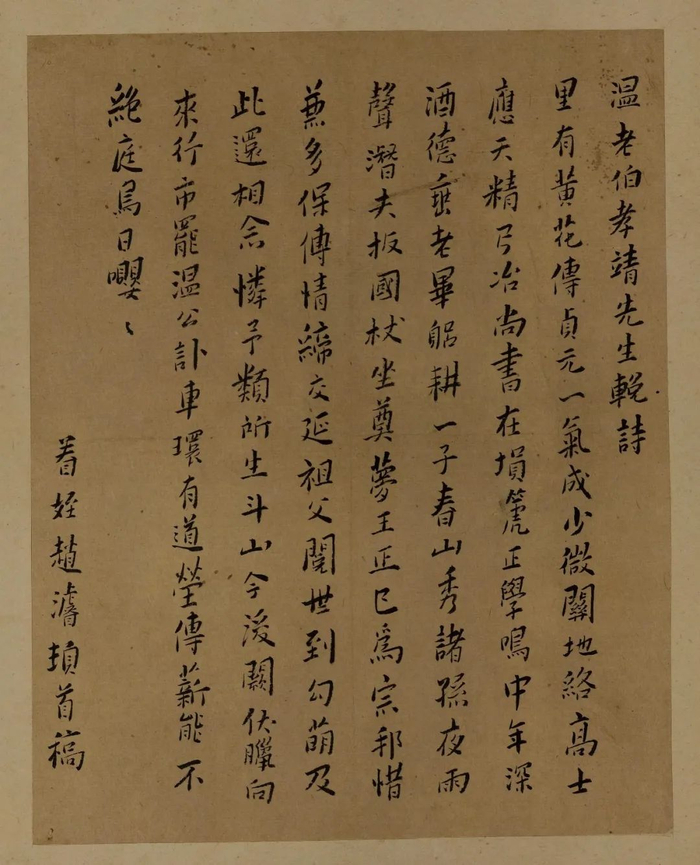 温老伯孝靖先生輓詩
里有黃花傳貞元一氣成少微關地絡高士
應天精弓冶尚書在塤箎正學鳴中年深
酒德垂老畢躬耕一子春山秀諸孫夜雨
聲潛夫扳國杖坐奠夢王正已為宗邦惜
兼多保傳情締交延祖父閱世到勾萌及
此還相念憐予類所生斗山今後闕伏臘向
來行市罷温公訃車環有道塋傳薪能不
絶庭烏日嚶〻
眷姪趙濬頓首稿